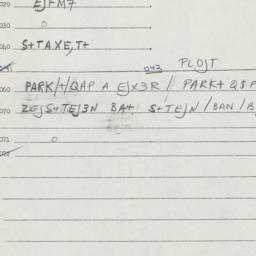 020 EJFM7
030 O
040 S+TAXE,T+
042 PLOJT
060 PARK/+/QAP A EJX3R // PARK+ QSP
070 ZEJS+TEJ3N BA+ S+TEJN/BAN/B
071 O
072